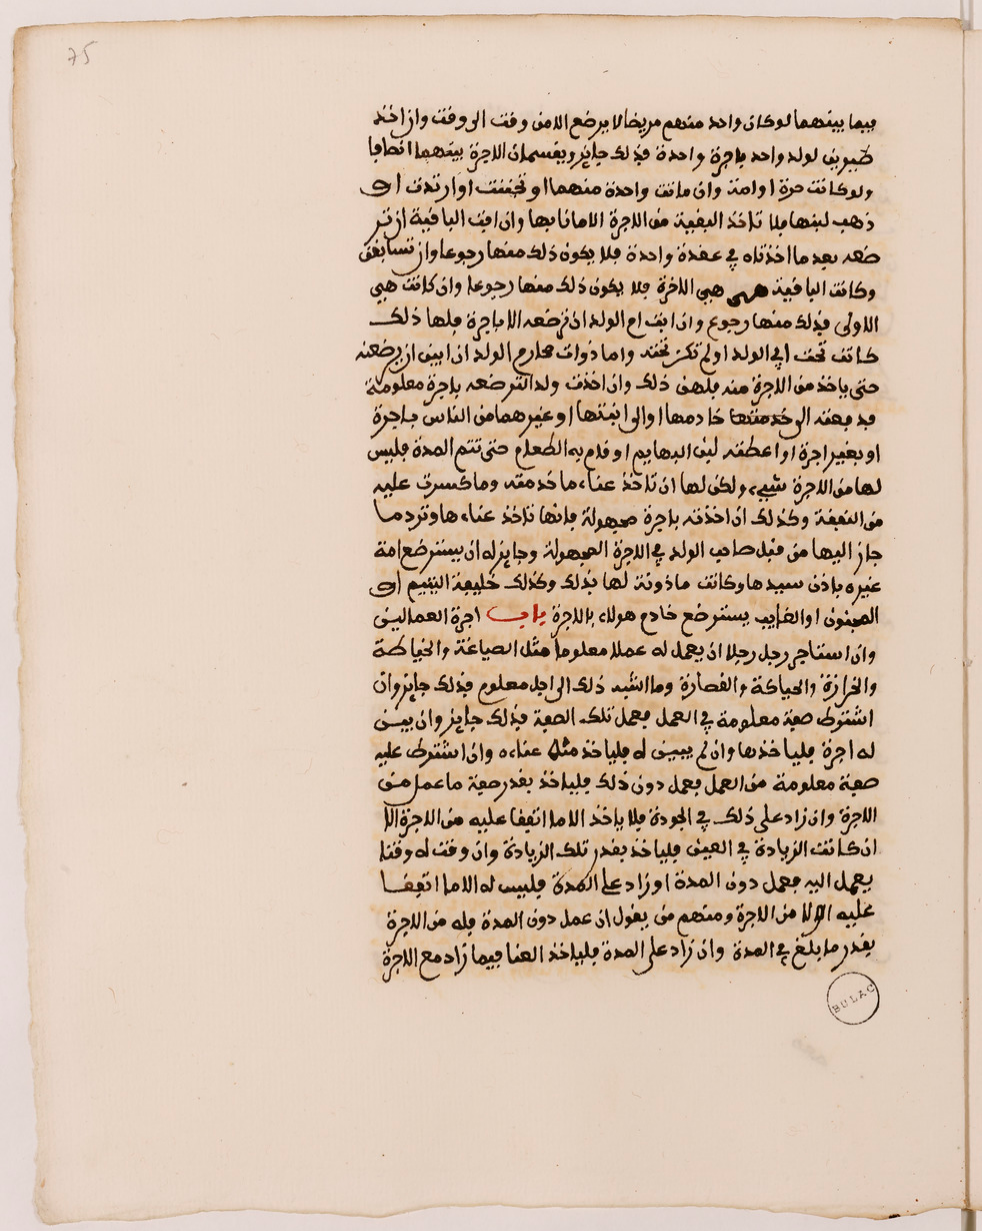 75
فيما بينهما لو كان واحد منهم مريضا لا يرضع الا من وقت الى وقت وان اخذ
ظييرين لولد واحد باجرة واحدة فذلك جايز ويقسمان الاجرة بينهما انصافا
ولو كانت حرة او امة وان ماتت واحدة منهما او تجننت او ارتدت او
ذهب لبنها فلا تاخذ البقية من الاجرة الا ما نابها وان ابت الباقية ان تر
ضعه بعد ما اخذتاه في عقدة واحدة فلا يكون ذلك منها رجوعا وان تسابقن
وكانت الباقية هي هي الاخرة فلا يكون ذلك منها رجوعا وان كانت هي
الاولى فذلك منها رجوع وان ابت ام الولد ان ترضعه الا باجرة فلها ذلك
كانت تحت ابي الولد او لم تكن تحته واما ذوات محارم الولد ان ابين ان يرضعنه
حتى ياخذن الاجرة منه فلهن ذلك وان اخذت ولدا لترضعه باجرة معلومة
فدفعته الى خدمتها خادمها او الى ابنتها او غيرهما من الناس باجرة
او بغير اجرة او اعطته لبن البهايم او قام به الطعام حتى تتم المدة فليس
لها من الاجرة شيء ولكن لها ان تاخذ عناء ما خدمته وما كسرت عليه
من النفقة وكذلك ان اخذته باجرة مجهولة فانها تاخذ عناءها وترد ما
جاز اليها من قبل صاحب الولد في الاجرة المجهولة وجايز له ان يسترضع امة
غيره باذن سيدها وكانت ماذونة لها بذلك وكذلك خليفة اليتيم او
المجنون او الغايب يسترضع خادم هولاء بالاجرة باب اجرة العمالين
وان استاجر رجل رجلا ان يعمل له عملا معلوما مثل الصياغة والخياطة
والخرازة والحياكة والقصارة وما اشبه ذلك الى اجل معلوم فذلك جايز وان
اشترط صفة معلومة في العمل فعمل تلك الصفة فذلك جايز وان بين
له اجرة فلياخذها وان لم يبين له فلياخذ مثل عناءه وان اشترط عليه
صفة معلومة من العمل فعمل دون ذلك فلياخذ بقدر صفة ما عمل من
الاجرة وان زاد على ذلك في الجودة فلا ياخذ الا ما اتفقا عليه من الاجرة الا
ان كانت الزيادة في العين فلياخذ بقدر تلك الزيادة وان وقت له وقتا
يعمل اليه فعمل دون المدة او زاد على المدة فليس له الا ما اتفقا
عليه اولا من الاجرة ومنهم من يقول ان عمل دون المدة فله من الاجرة
بقدر ما بلغ في المدة وان زاد على المدة فلياخذ العنا فيما زاد مع الاجرة
BULAC